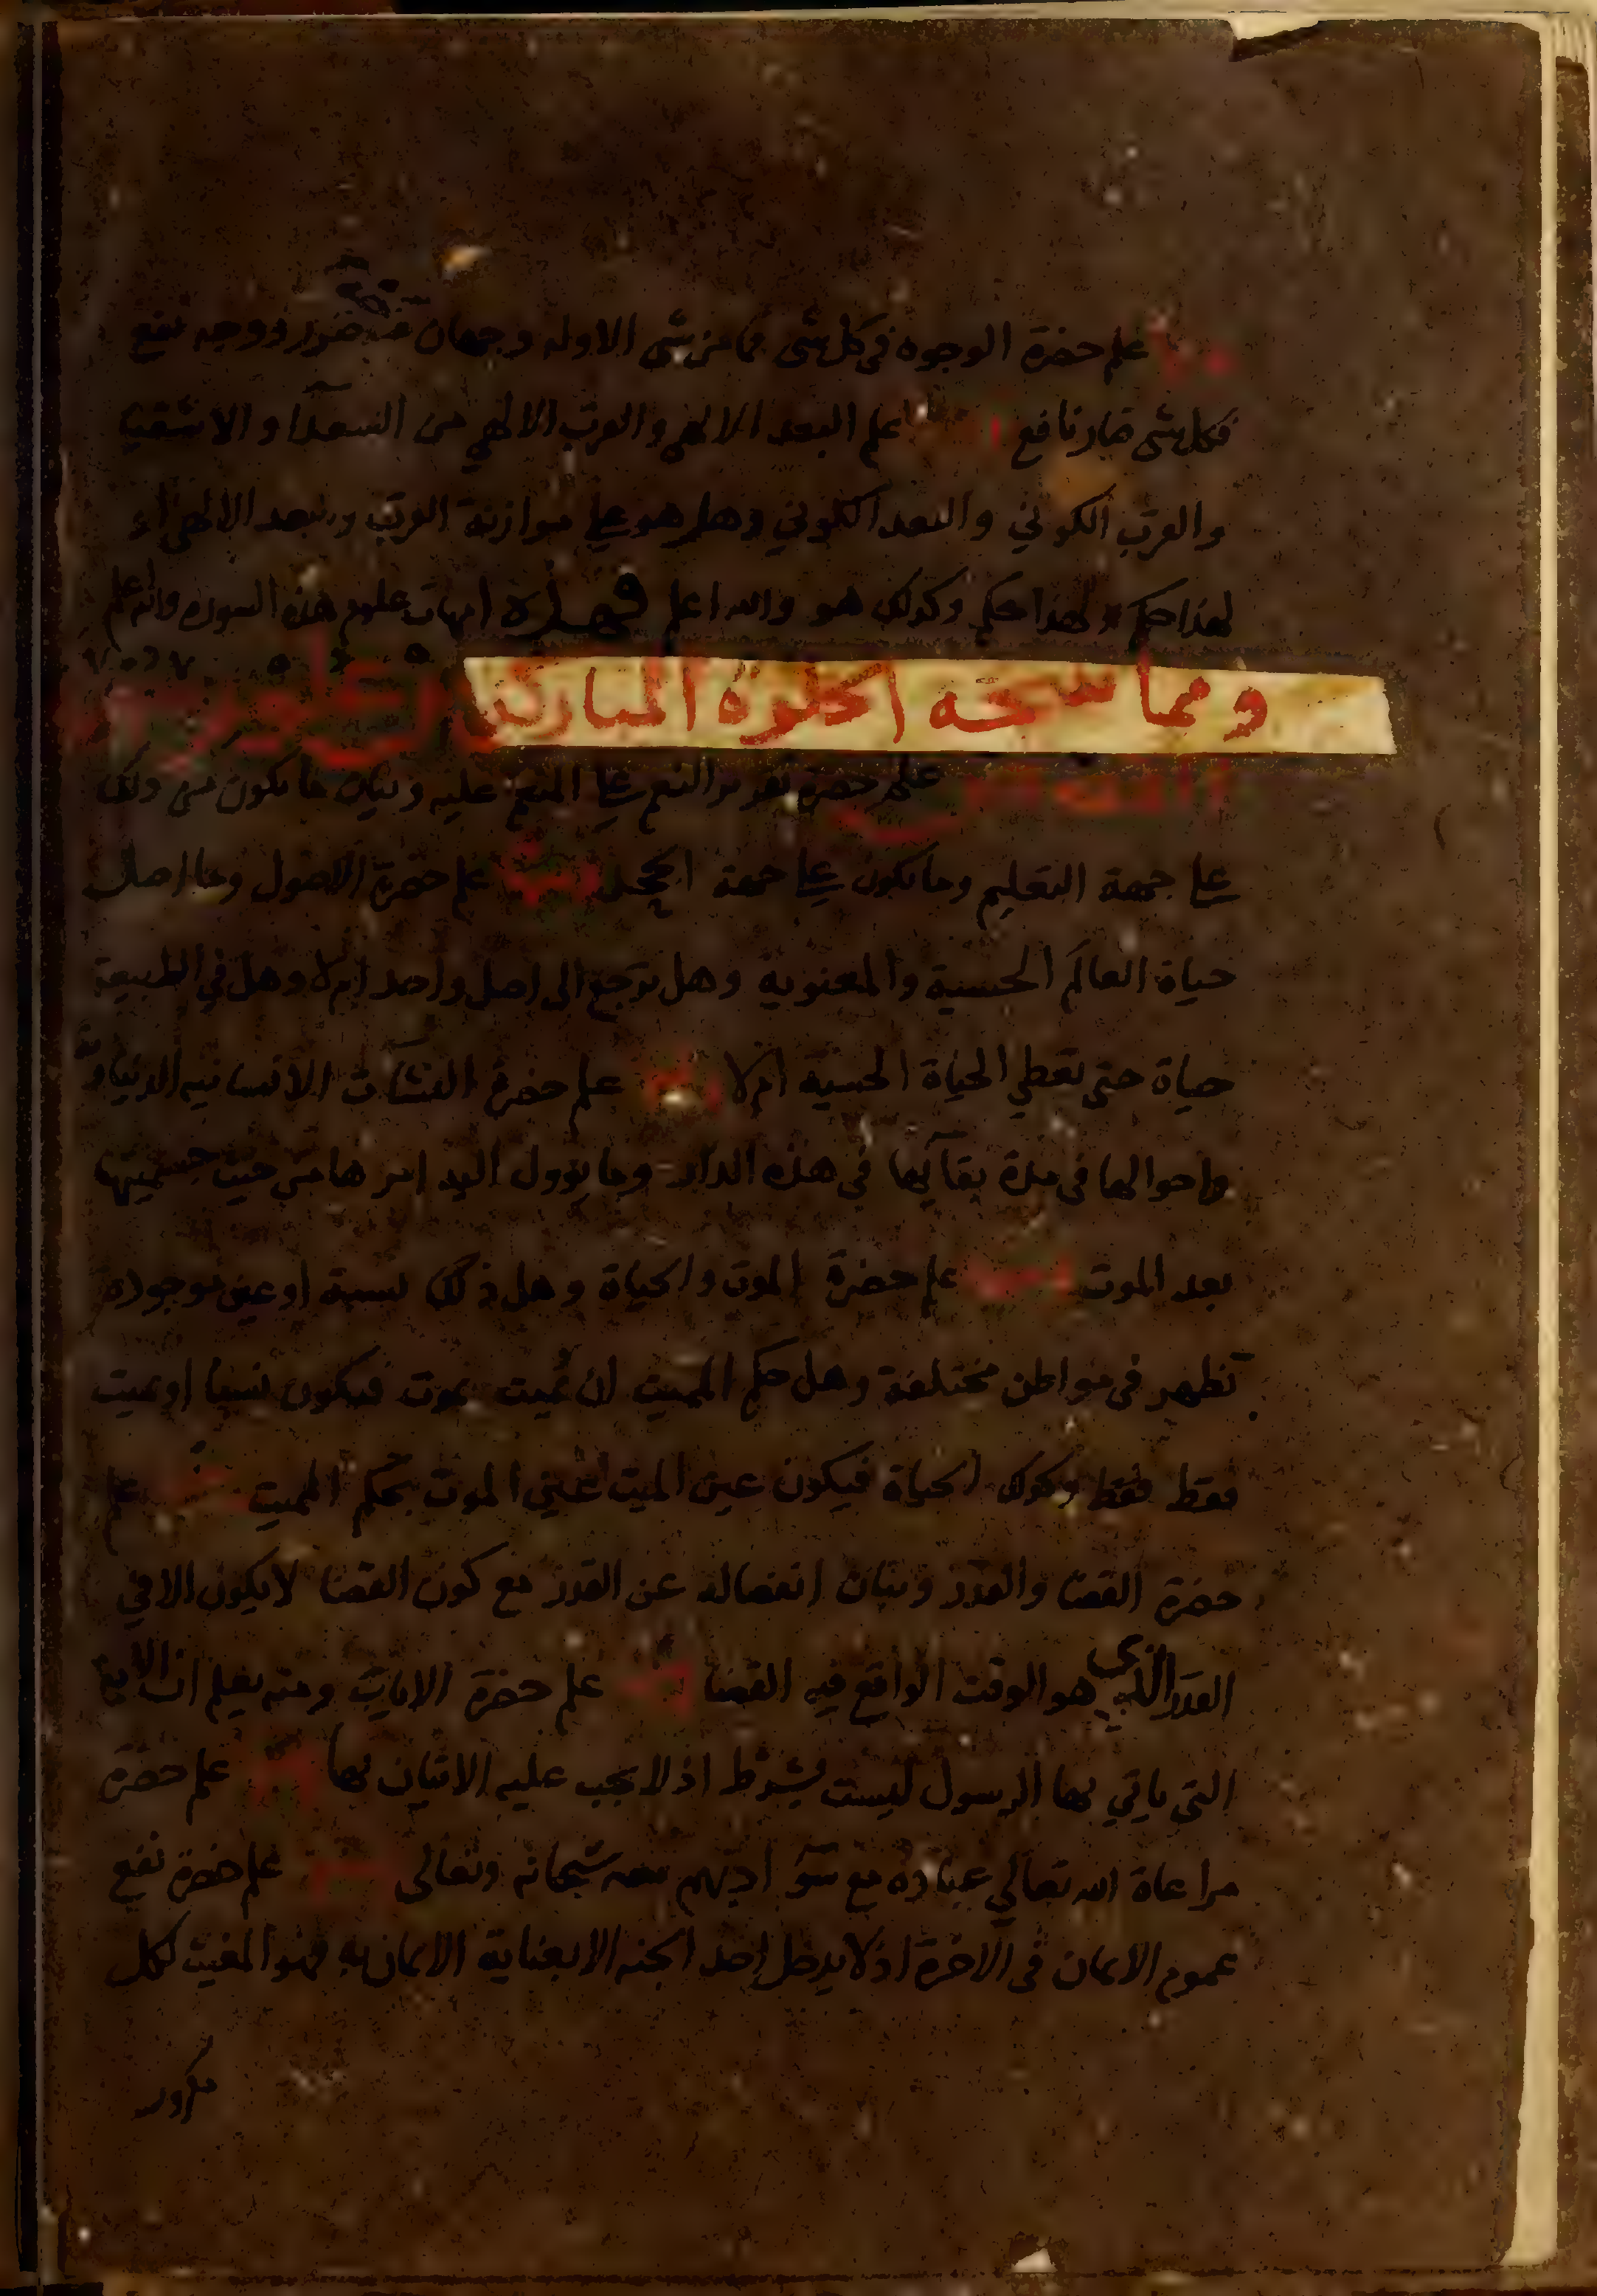 علم حضرة الوجوه في كل شى فما من شى الا وله وجهان ضرر ووجه نفع
فكل شى ضار نافع علم البعد الالهي والقرب الالهي من السعدا والاشقيا
والقرب الكوني والبعد الكوني وهل هو على موازنة القرب والبعد الالهي او
لهذا حكم ولهذا حكم وكذلك هو والله اعلم فهذه امهات علوم هذه السورة والله اعلم
ومما نتيجته الخلوة المباركة
علم حضرة تقرير النعم على المنعم عليه وبيان ما يكون من ذلك
على جهة التعليم وما يكون على جهة علم حضرة الاصول وما اصل
حياة العالم الحسية والمعنوية وهل ترجع الى اصل واحد ام لا وهل في الطبيعة
حياة حتى تعطي الحياة الحسية ام لا علم حضرة النشآت الانسانيه الدنياوية
واحوالها في مدة بقآيها في هذه الدار وما يوول اليه امرها من حيث جسميتها
بعد الموت علم حضرة الموت والحياة وهل ذلك نسبة او عين موجودة
تظهر في مواطن مختلفة وهل حكم المميت ان يميت بموت فيكون نسبيا او يميت
فقط فقط وكذلك الحياة فيكون عين الميت عين الموت بحكم المميت علم
حضرة القضا والقدر وبيان انفصاله عن القدر مع كون القضا لا يكون الا في
القدر الذي هو الوقت الواقع فيه القضا علم حضرة الايات ومنه يعلم ان الاية
التى ياتي بها الرسول ليست بشرط اذ لا يجب عليه الاتيان بها علم حضرة
مراعاة الله تعالى عباده مع سوء ادبهم معه سبحانه وتعالى علم حضرة نفع
عموم الايمان في الاخرة اذ لا يدخل احد الجنه الا بعناية الايمان به فهو المغيث لكل